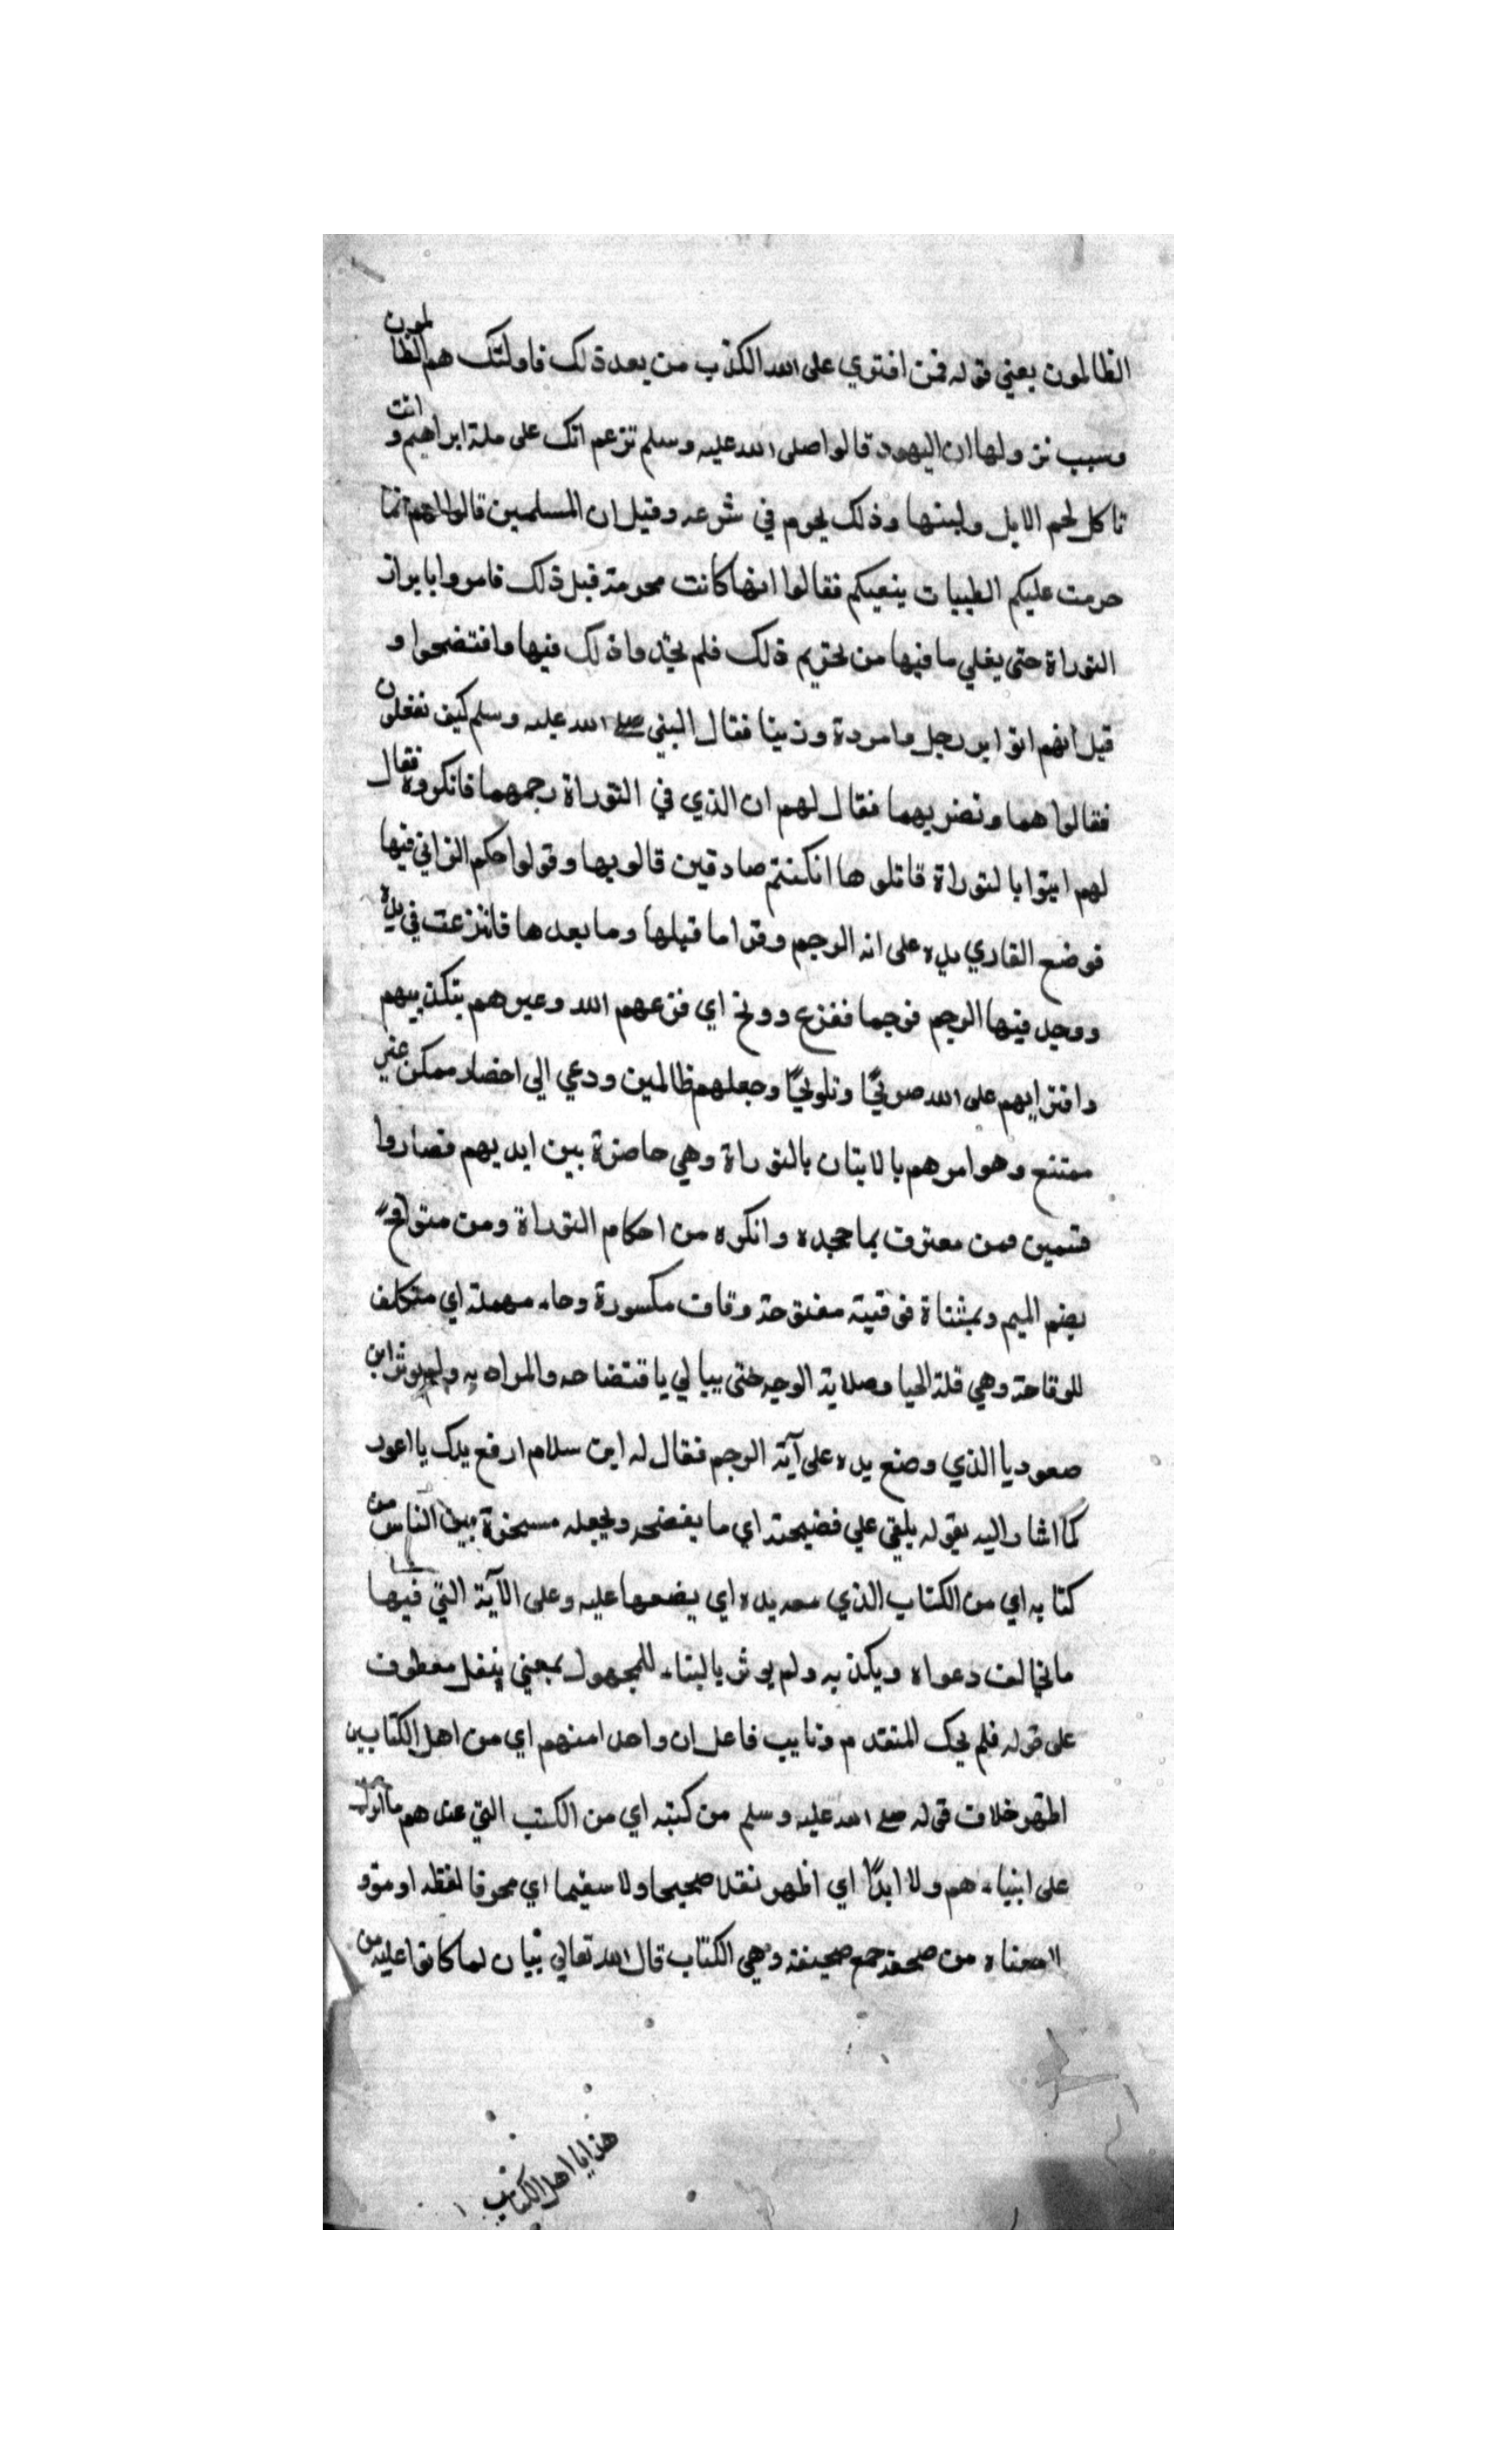 الظالمون يعني قوله فمن افتري على الله الكذب من بعد ذلك فاولئك هم الظالمون
وسبب نزولها ان اليهود قالوا صلى الله عليه وسلم تزعم انك على ملة ابراهيم وانت
تاكل لحم الابل ولبنها وذلك يحرم في شرعه وقيل ان المسلمين قالوا لهم انما
حرمت عليكم الطيبات ببغيكم فقالوا انها كانت محرمة قبل ذلك فامروا بابراز
التوراة حتى يغلي ما فيها من تحريم ذلك فلم يجدوا ذلك فيها وافتضحوا و
قيل انهم اتوا برجل وامرءة وزينا فقال النبي صلى الله عليه وسلم كيف تفعلون
فقالوا هما ونضربهما فقال لهم ان الذي في التوراة رجمهما فانكروه فقال
لهم ايتوا بالتوراة فاتلوها ان كنتم صادقين قالوبها وقولوا حكم الزاني فيها
فوضع القاري يده على اية الرجم وقرا ما قبلها وما بعدها فانزعت في يده
ووجد فيها الرجم فرجما ففزع ووبخ اي فزعهم الله وعيرهم بتكذيبهم
وافترايهم على الله صريحًا وتلويحًا وجعلهم ظالمين ودعي الى احضار ممكن غير
ممتنع وهو امرهم بالاتيان بالتوراة وهي حاضرة بين ايديهم فصاروا
قسمين فمن معترف بما جحده وانكره من احكام التوراة ومن متواقح
بضم الميم وبمثناة فوقية مفتوحة وقاف مكسورة وحاء مهملة اي متكلف
للوقاحة وهي قلة الحيا وصلابة الوجه حتى يبالي بافتضاحه والمراد به ابن
صعوديا الذي وضع يده على آية الرجم فقال له ابن سلام ارفع يدك يا اعور
كما اشار اليه بقوله يلقي على فضيحته اي ما يفضحه ويجعله مسخرة بين الناس من
كتابه اي من الكتاب الذي معه يده اي يضعها عليه وعلى الآية التي فيها
ما يخالف دعواه ويكذبه ولم يوثر بالبناء للمجهول بمعني ينقل معطوف
على قوله فلم يحك المتقدم ونايب فاعل ان واحدا منهم اي من اهل الكتابين
اظهر خلاف قوله صلى الله عليه وسلم من كتبه اي من الكتب التي عندهم مما انزل
على انبياءهم ولا ابدًا اي اظهر نقلا صحيحا ولا سقيما اي محرفا لفظه او مؤو
لا معناه من صحفه جمع صحيفة وهي الكتاب قال الله تعالى بيان لما كانوا عليه من
هذا يا اهل الكتاب